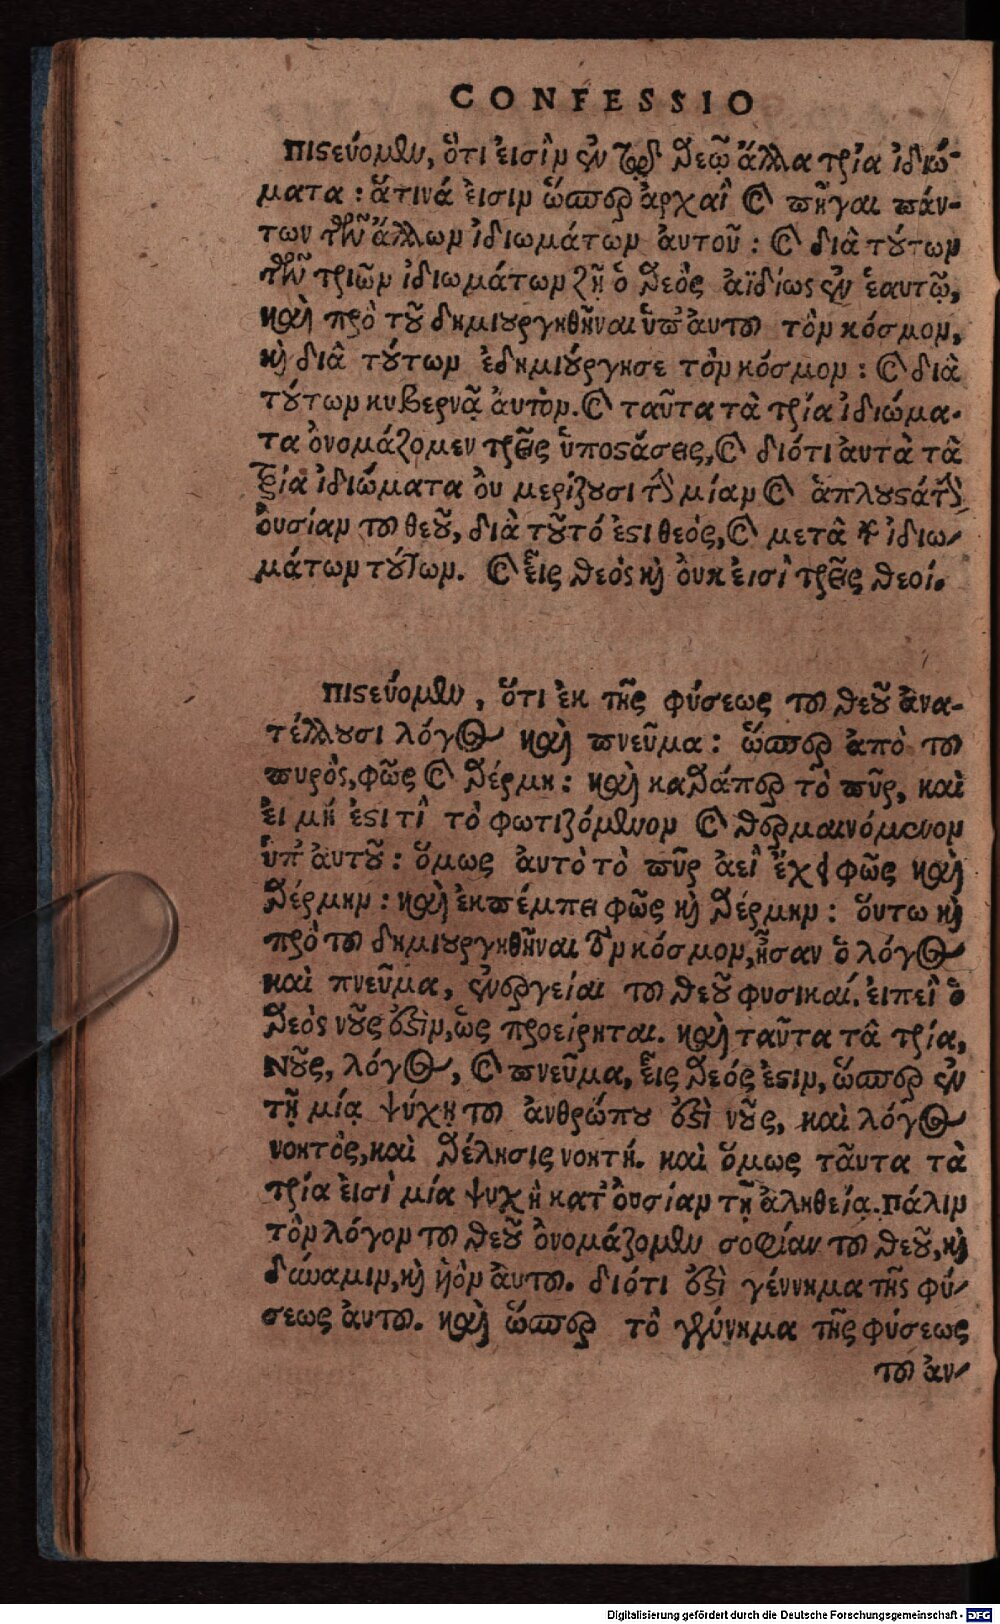 CONFESSIO
πιϛεύομεν, ὅτι ἐισὶν ἐν τῷ θεῷ ἄλλα τρία ἰδιώ-
ματα: ἅτινά ἐισιν ὥσπερ ἀρχαὶ καὶ πῆγαι πάν-
των τῶν ἄλλων ἰδιωμάτων ἀυτοῦ: καὶ διὰ τούτων
τῶν τριῶν ἰδιωμάτων ζῇ ὁ θεὸς ἀϊδίως ἐν ἑαυτῷ,
καὶ πρὸ τοῦ δημιουργηθῆναι ὑπ' ἀυτοῦ τὸν κόσμον,
καὶ διὰ τούτων ἐδημιούργησε τὸν κόσμον: καὶ διὰ
τούτων κυβερνᾷ ἀυτὸν. καὶ ταῦτα τὰ τρία ἰδιώμα-
τα ὀνομάζομεν τρεῖς ὑποϛάσεις, καὶ διότι ἀυτὰ τὰ
τρία ἰδιώματα ὀυ μερίζουσι τὴν μίαν καὶ ἁπλουϛάτην
ὀυσίαν τοῦ θεοῦ, διὰ τοῦτό ἐϛι θεός, καὶ μετὰ τῶν ἰδιω-
μάτων τούτων. καὶ εἷς θεὸς καὶ ὀυκ ἐισὶ τρεῖς θεοί.
πιϛεύομεν, ὅτι ἐκ τῆς φύσεως τοῦ θεοῦ ἀνα-
τέλλουσι λόγος καὶ πνεῦμα: ὥσπερ ἀπὸ τοῦ
πυρὸς, φῶς καὶ θέρμη: καὶ καθάπερ τὸ πῦρ, καὶ
ἐι μή ἐϛι τὶ τὸ φωτιζόμενον καὶ θερμαινόμενον
ὑπ' ἀυτοῦ: ὅμως ἀυτὸ τὸ πῦρ ἀεὶ ἔχει φῶς καὶ
θέρμην: καὶ ἐκπέμπει φῶς καὶ θέρμην: ὅυτω καὶ
πρὸ τοῦ δημιουργηθῆναι τὸν κόσμον, ἦσαν ὁ λόγος
καὶ πνεῦμα, ἐνεργείαι τοῦ θεοῦ φυσικαί. ἐιπεὶ ὁ
θεὸς νοῦς ἐϛὶν, ὡς προείρηται. καὶ ταῦτα τὰ τρία,
Νοῦς, λόγος, καὶ πνεῦμα, εἷς θεός ἐϛιν, ὥσπερ ἐν
τῇ μίᾳ ψύχῃ τοῦ ἀνθρώπου ἐϛὶ νοῦς, καὶ λόγος
νοητὸς, καὶ θέλησις νοητή. καὶ ὅμως ταῦτα τὰ
τρία ἐισὶ μία ψυχὴ κατ' ὀυσίαν τῇ ἀληθείᾳ. Πάλιν
τὸν λόγον τοῦ θεοῦ ὀνομάζομεν σοφίαν τοῦ θεοῦ, καὶ
δύναμιν, καὶ ἡὸν ἀυτοῦ. διότι ἐϛὶ γέννημα τῆς φύ-
σεως ἀυτοῦ. καὶ ὥσπερ τὸ γέννημα τῆς φύσεως
τοῦ ἀν-
Digitalisierung gefördert durch die Deutsche Forschungsgemeinschaft - DFG